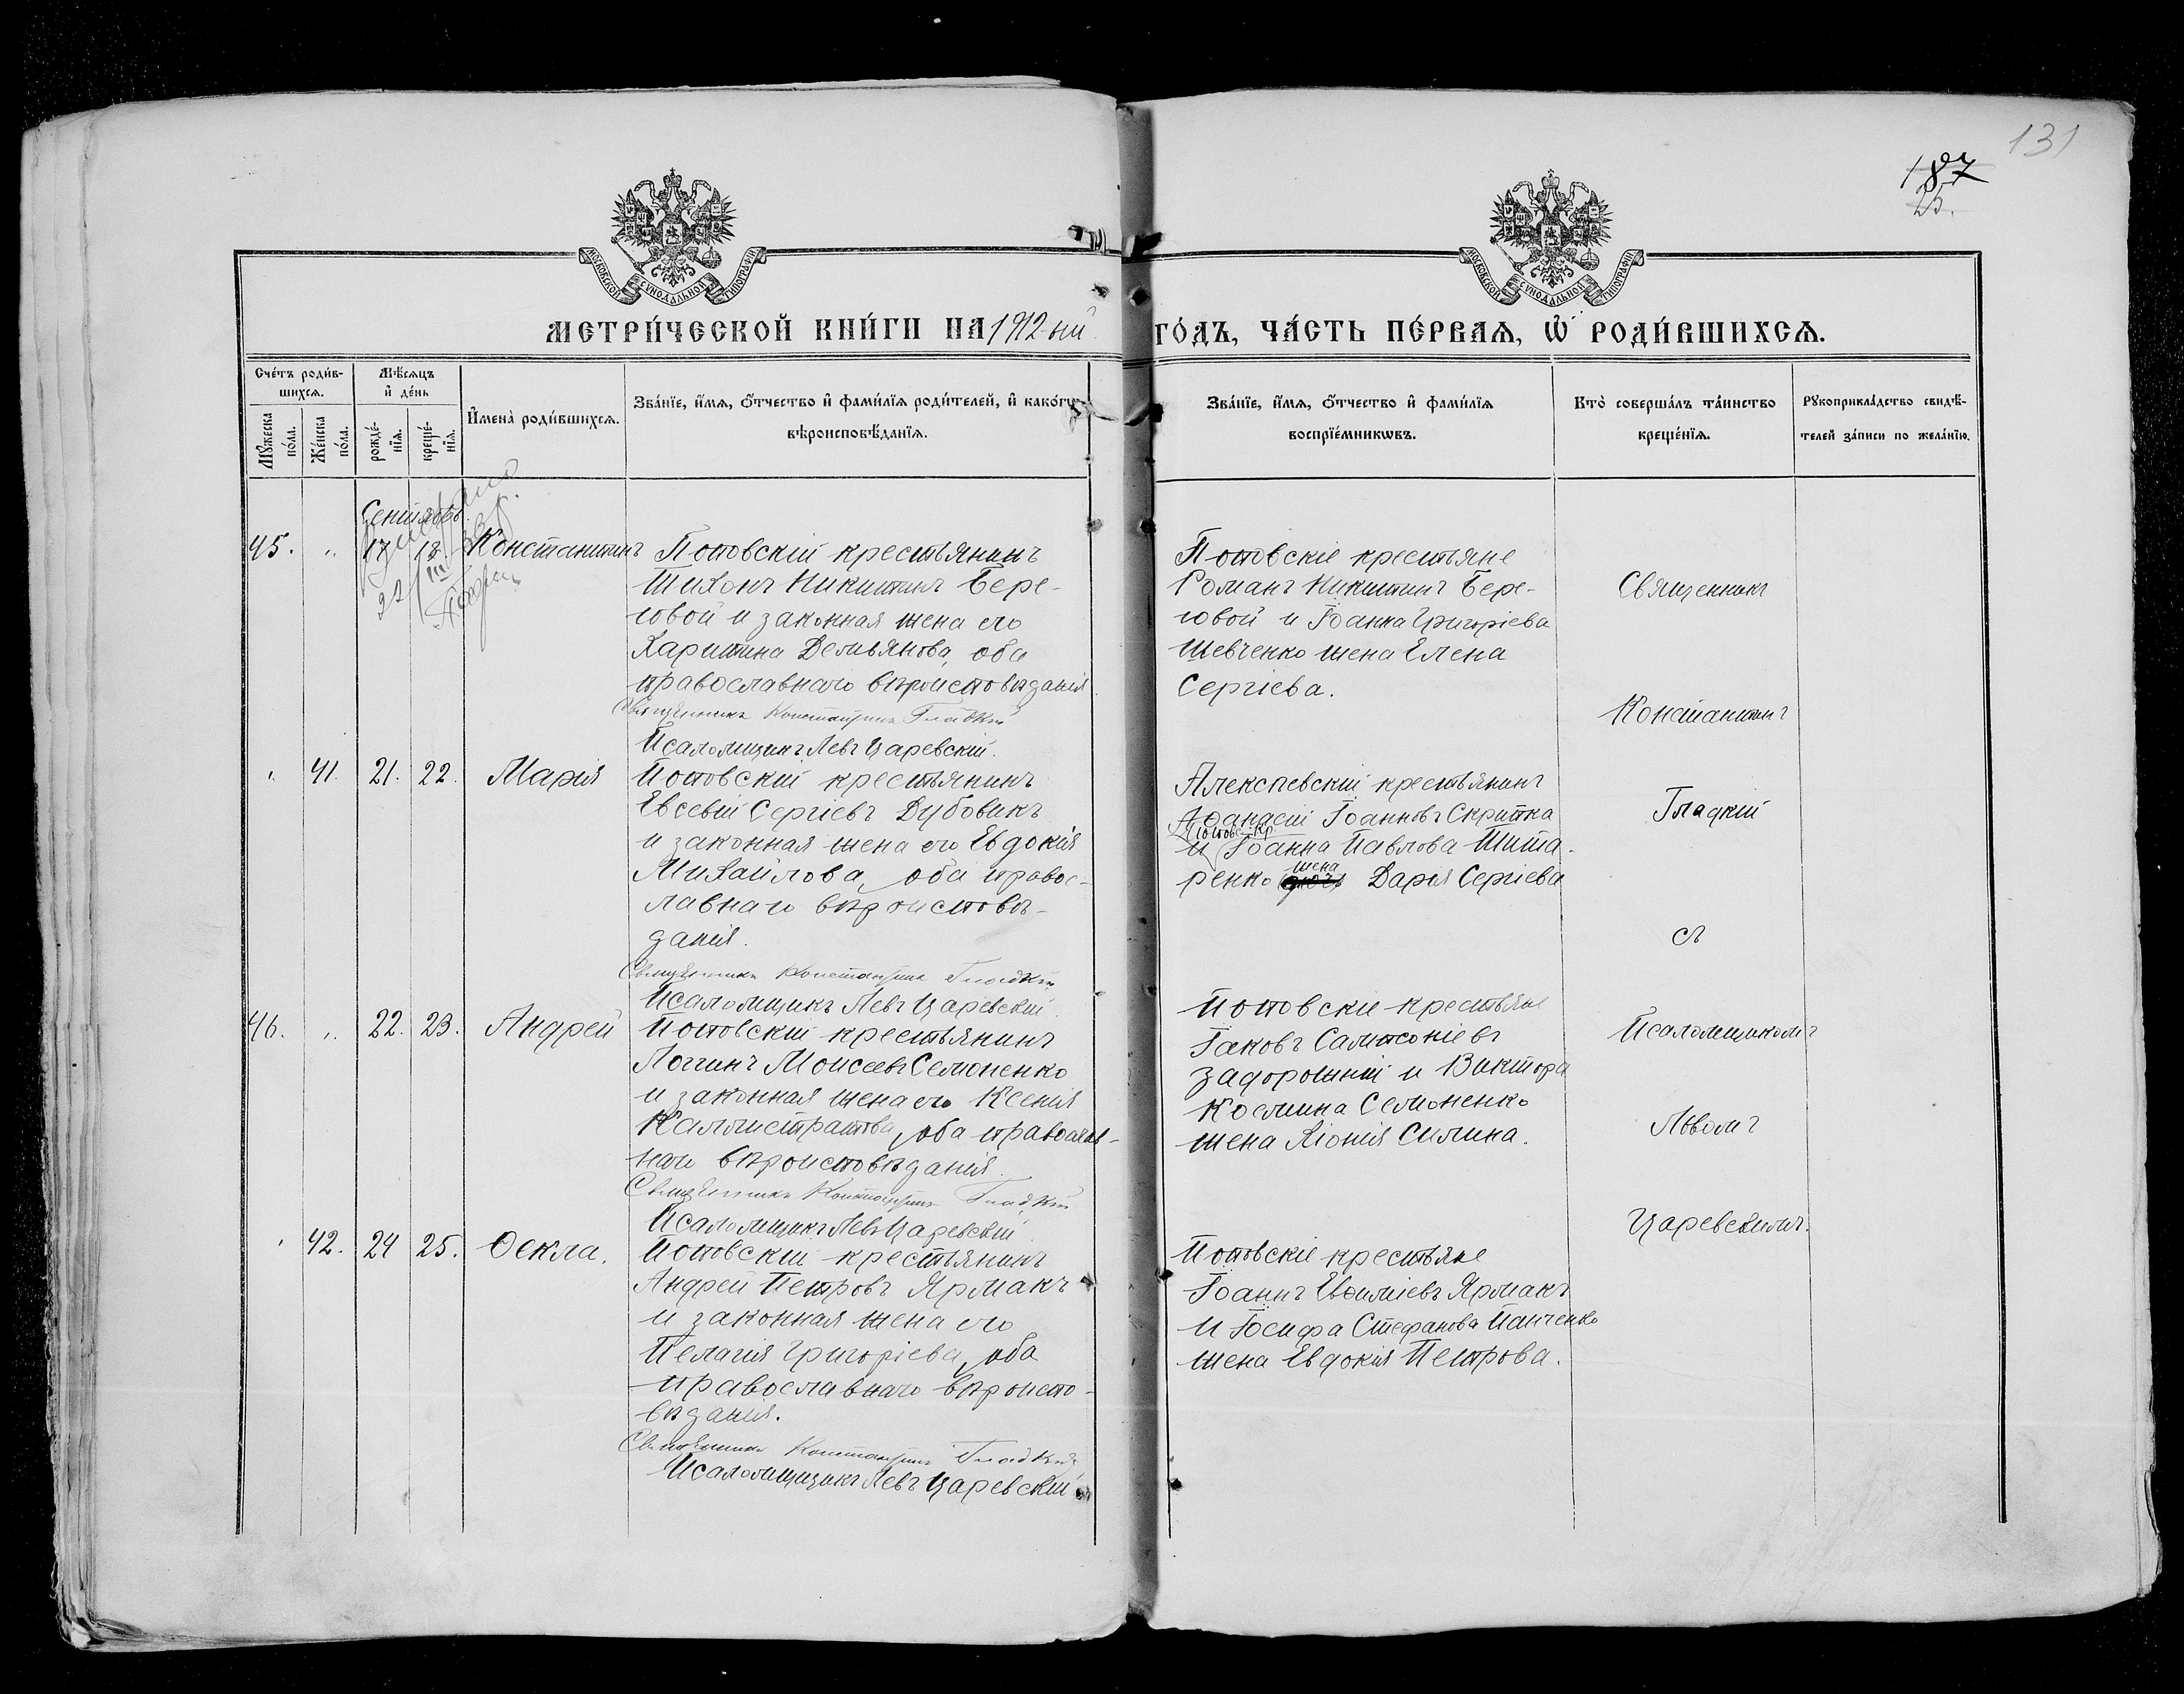 131
187
25.
МОСКОВСКОЙ СУНОДАЛЬНОЙ ТИПОГРАФІИ
МОСКОВСКОЙ СУНОДАЛЬНОЙ ТИПОГРАФІИ
МЕТРИ́ЧЕСКОЙ КНИ́ГИ НА 1912-ый
ГО́ДЪ, ЧА́СТЬ ПЕ́РВАѦ, Ѡ҆ РОДИ́ВШИХСѦ.
Сче́тъ роди́в-
шихсѧ.
Мꙋ́жеска по́ла.
Же́нска по́ла.
Мѣ́сѧцъ
и҆ де́нь
рожде́-
нїѧ.
креще́-
нїѧ.
И҆мена̀ роди́вшихсѧ.
Зва́нїе, и҆́мѧ, ѻ҆́тчество и҆ фами́лїѧ роди́телей, и҆ како́гѡ
вѣроисповѣ́данїѧ.
Зва́нїе, и҆́мѧ, ѻ҆́тчество и҆ фами́лїѧ
воспрїе́мникѡвъ.
Кто̀ соверша́лъ та́инство
креще́нїѧ.
Рꙋкоприкла́дство свидѣ́-
телей за́писи по жела́нїю.
Сентябрь.
45. „ 17 18. Константинъ Поповскій крестьянинъ
Тихонъ Никитинъ Бере-
говой и законная жена его
Харитина Демьянова, оба
православнаго вѣроисповѣданія.
Священникъ Константинъ Гладкій
Псаломщикъ Левъ Царевскій.
Поповскіе крестьяне
Романъ Никитинъ Бере-
говой и Іоанна Григоріева
Шевченко жена Елена
Сергіева.
„ 41. 21. 22. Марія Поповскій крестьянинъ
Евсевій Сергіевъ Дубовикъ
и законная жена его Евдокія
Михайлова, оба правос-
лавнаго вѣроисповѣ-
данія.
Священникъ Константинъ Гладкій
Псаломщикъ Левъ Царевскій.
Алексѣевскій крестьянинъ
Аѳанасій Іоанновъ Скрипка
Поповск. кр.
и Іоанна Павлова Шита-
жена
ренко Дарія Сергіева
46. „ 22. 23. Андрей Поповскій крестьянинъ
Логгинъ Моисеевъ Семоненко
и законная жена его Ксенія
Каллистратова, оба православ-
наго вѣроисповѣданія.
Священникъ Константинъ Гладкій
Псаломщикъ Левъ Царевскій.
Поповскіе крестьяне
Іаковъ Сампсоніевъ
Задорожній и Виктора
Космина Семоненко
жена Хіонія Силина.
„ 42. 24 25. Ѳекла. Поповскій крестьянинъ
Андрей Петровъ Ярмакъ
и законная жена его
Пелагія Григоріева, оба
православнаго вѣроиспо-
вѣданія.
Священникъ Константинъ Гладкій
Псаломщикъ Левъ Царевскій
Поповскіе крестьяне
Іоаннъ Евѳиміевъ Ярмакъ
и Іосифа Стефанова Панченко
жена Евдокія Петрова.
Священникъ
Константинъ
Гладкій
съ
Псаломщикомъ
Львомъ
Царевскимъ.